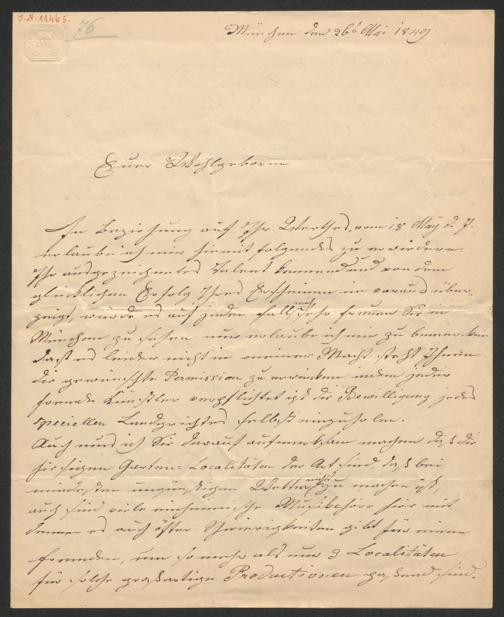 I.N. 11465.
76
München den 26t Mai 1849
Euer Wohlgeboren
In Beziehung auf Ihr Werthes vom 18 May d. J.
erlaube ich mir hiermit folgendes zu erwiedern.
Ihr ausgezeichnetes Talent kennend und von dem
glücklichen Erfolg Ihres Erscheinen in voraus über-
zeugt, würde es auf jeden Fall mich sehr freuen Sie in
München zu sehen nur erlaube ich mir zu bemerken
dass es leider nicht in meiner Macht steht Ihnen
die gewünschte Permission zu erwirken indem jeder
fremde Künstler verpflichtet ist die Bewilligung jedes
speciellen Landgerichtes selbst einzuholen.
Auch muss ich Sie darauf aufmerksam machen daß die
hiesigen Garten-Localitäten der Art sind daß bei
mindesten ungünstigen Wetter zu machen ist
auch sind viele einheimische Musikchöre hier mit
denen es auch öfter Schwierigkeiten gibt für einen
fremden, um so mehr als nur 3 Localitäten
für solche großartige Productionen passend sind.